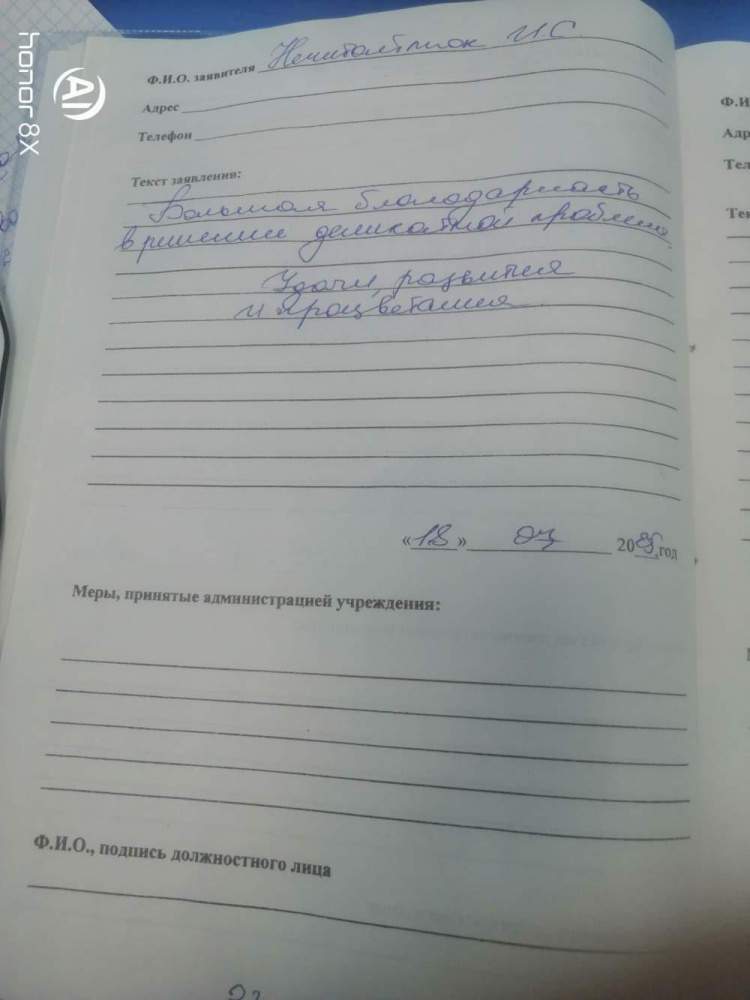 Ф.И.О. заявителя И С
Адрес
Телефон
Текст заявления:
Большая благодарность
в решение деликатной проблеме
Удачи, развития
и процветания
«18» 07 20 год
Меры, принятые администрацией учреждения:
Ф.И.О., подпись должностного лица
Ф.И
Адр
Тел
Тек
honor 8X
AI